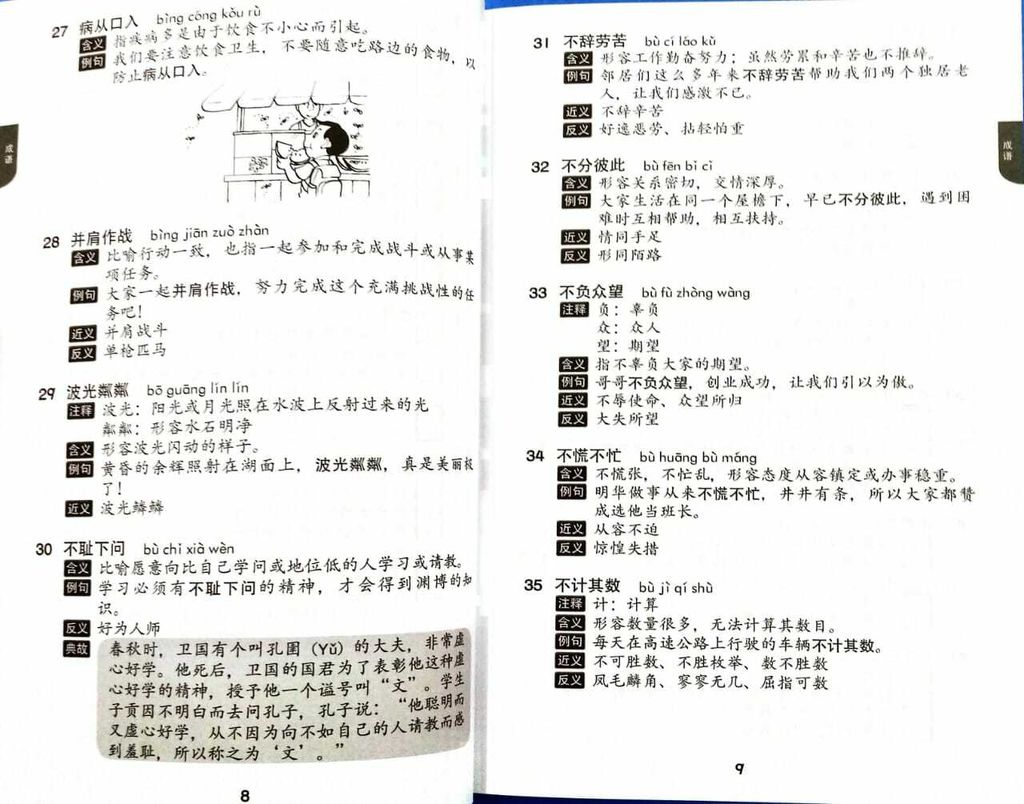 27 病从口入 bìng cóng kǒu rù
含义 指疾病多是由于饮食不小心而引起。
例句 我们要注意饮食卫生，不要随意吃路边的食物，以
防止病从口入。
成语
28 并肩作战 bìng jiān zuò zhàn
含义 比喻行动一致，也指一起参加和完成战斗或从事某
项任务。
例句 大家一起并肩作战，努力完成这个充满挑战性的任
务吧！
近义 并肩战斗
反义 单枪匹马
29 波光粼粼 bō guāng lín lín
注释 波光：阳光或月光照在水波上反射过来的光
粼粼：形容水石明净
含义 形容波光闪动的样子。
例句 黄昏的余辉照射在湖面上，波光粼粼，真是美丽极
了！
近义 波光鳞鳞
30 不耻下问 bù chǐ xià wèn
含义 比喻愿意向比自己学问或地位低的人学习或请教。
例句 学习必须有不耻下问的精神，才会得到渊博的知
识。
反义 好为人师
典故 春秋时，卫国有个叫孔圉（Yǔ）的大夫，非常虚
心好学。他死后，卫国的国君为了表彰他这种虚
心好学的精神，授予他一个谥号叫“文”。学生
子贡因不明白而去问孔子，孔子说：“他聪明而
又虚心好学，从不因为向不如自己的人请教而感
到羞耻，所以称之为‘文’。”
8
31 不辞劳苦 bù cí láo kǔ
含义 形容工作勤奋努力；虽然劳累和辛苦也不推辞。
例句 邻居们这么多年来不辞劳苦帮助我们两个独居老
人，让我们感激不已。
近义 不辞辛苦
反义 好逸恶劳、拈轻怕重
成语
32 不分彼此 bù fēn bǐ cǐ
含义 形容关系密切，交情深厚。
例句 大家生活在同一个屋檐下，早已不分彼此，遇到困
难时互相帮助，相互扶持。
近义 情同手足
反义 形同陌路
33 不负众望 bù fù zhòng wàng
注释 负：辜负
众：众人
望：期望
含义 指不辜负大家的期望。
例句 哥哥不负众望，创业成功，让我们引以为傲。
近义 不辱使命、众望所归
反义 大失所望
34 不慌不忙 bù huāng bù máng
含义 不慌张，不忙乱，形容态度从容镇定或办事稳重。
例句 明华做事从来不慌不忙，井井有条，所以大家都赞
成选他当班长。
近义 从容不迫
反义 惊惶失措
35 不计其数 bù jì qí shù
注释 计：计算
含义 形容数量很多，无法计算其数目。
例句 每天在高速公路上行驶的车辆不计其数。
近义 不可胜数、不胜枚举、数不胜数
反义 凤毛麟角、寥寥无几、屈指可数
9